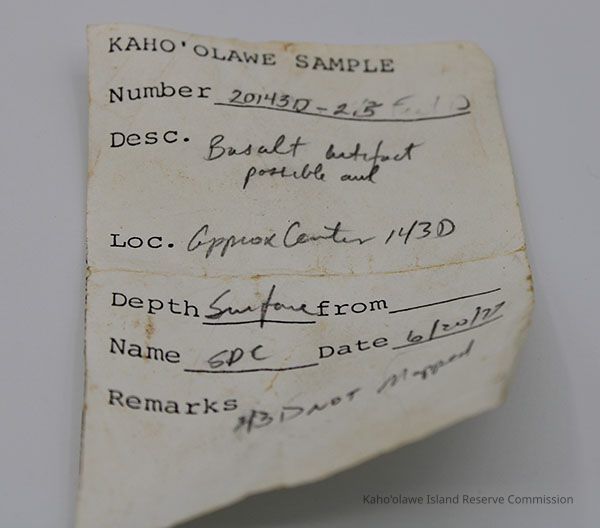 KAHO'OLAWE SAMPLE
Number 20143D-2,3
Desc. Basalt artifact
possible awl
Loc. Approx Center 143D
Depth Surface from
Name SDC Date 6/20/77
Remarks 143D NOT Mapped
Kaho'olawe Island Reserve Commission